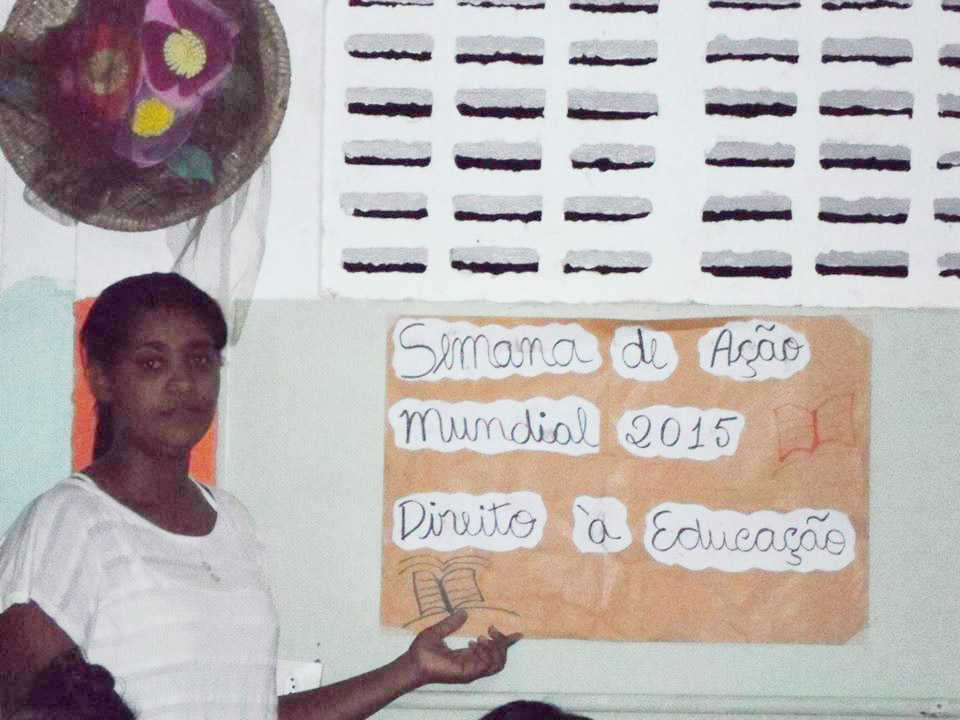 Semana de Ação
Mundial 2015
Direito à Educação